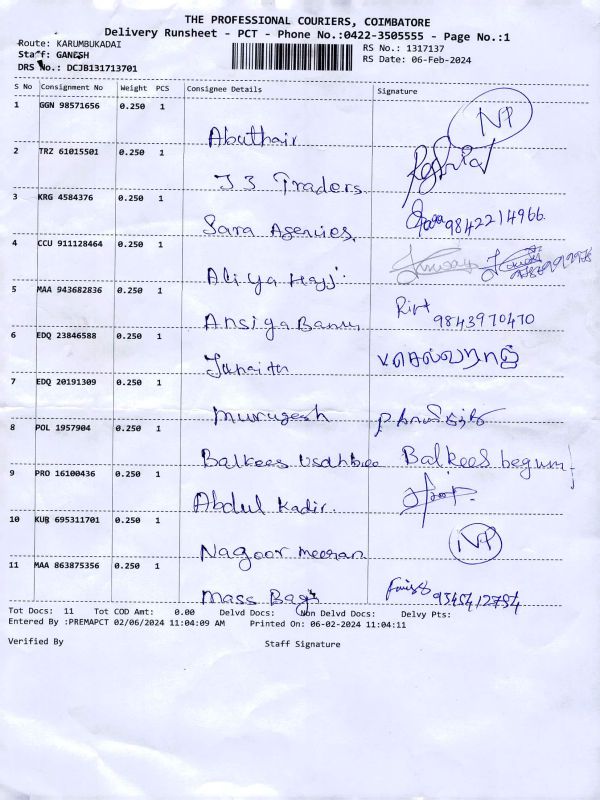 THE PROFESSIONAL COURIERS, COIMBATORE
Delivery Runsheet - PCT - Phone No.:0422-3505555 - Page No.:1
Route: KARUMBUKADAI
Staff: GANESH
DRS No.: DCJB131713701
RS No.: 1317137
RS Date: 06-Feb-2024
S No Consignment No Weight PCS Consignee Details Signature
1 GGN 98571656 0.250 1
Abuthair NP
2 TRZ 61015501 0.250 1
J3 Traders
3 KRG 4584376 0.250 1
Sara Agencies, 9842214966
4 CCU 911128464 0.250 1
Aliya Hajj
5 MAA 943682836 0.250 1
Ansiga Banu 9843970470
6 EDQ 23846588 0.250 1
Junaith செல்வராஜ்
7 EDQ 20191309 0.250 1
Murugesh
8 POL 1957904 0.250 1
Balkees Balkees begum
9 PRO 16100436 0.250 1
Abdul Kadir.
10 KUB 695311701 0.250 1
Nagoor meeran NP
11 MAA 863875356 0.250 1
Mass Bags
Tot Docs: 11 Tot COD Amt: 0.00 Delvd Docs: Non Delvd Docs: Delvy Pts:
Entered By :PREMAPCT 02/06/2024 11:04:09 AM Printed On: 06-02-2024 11:04:11
Verified By Staff Signature